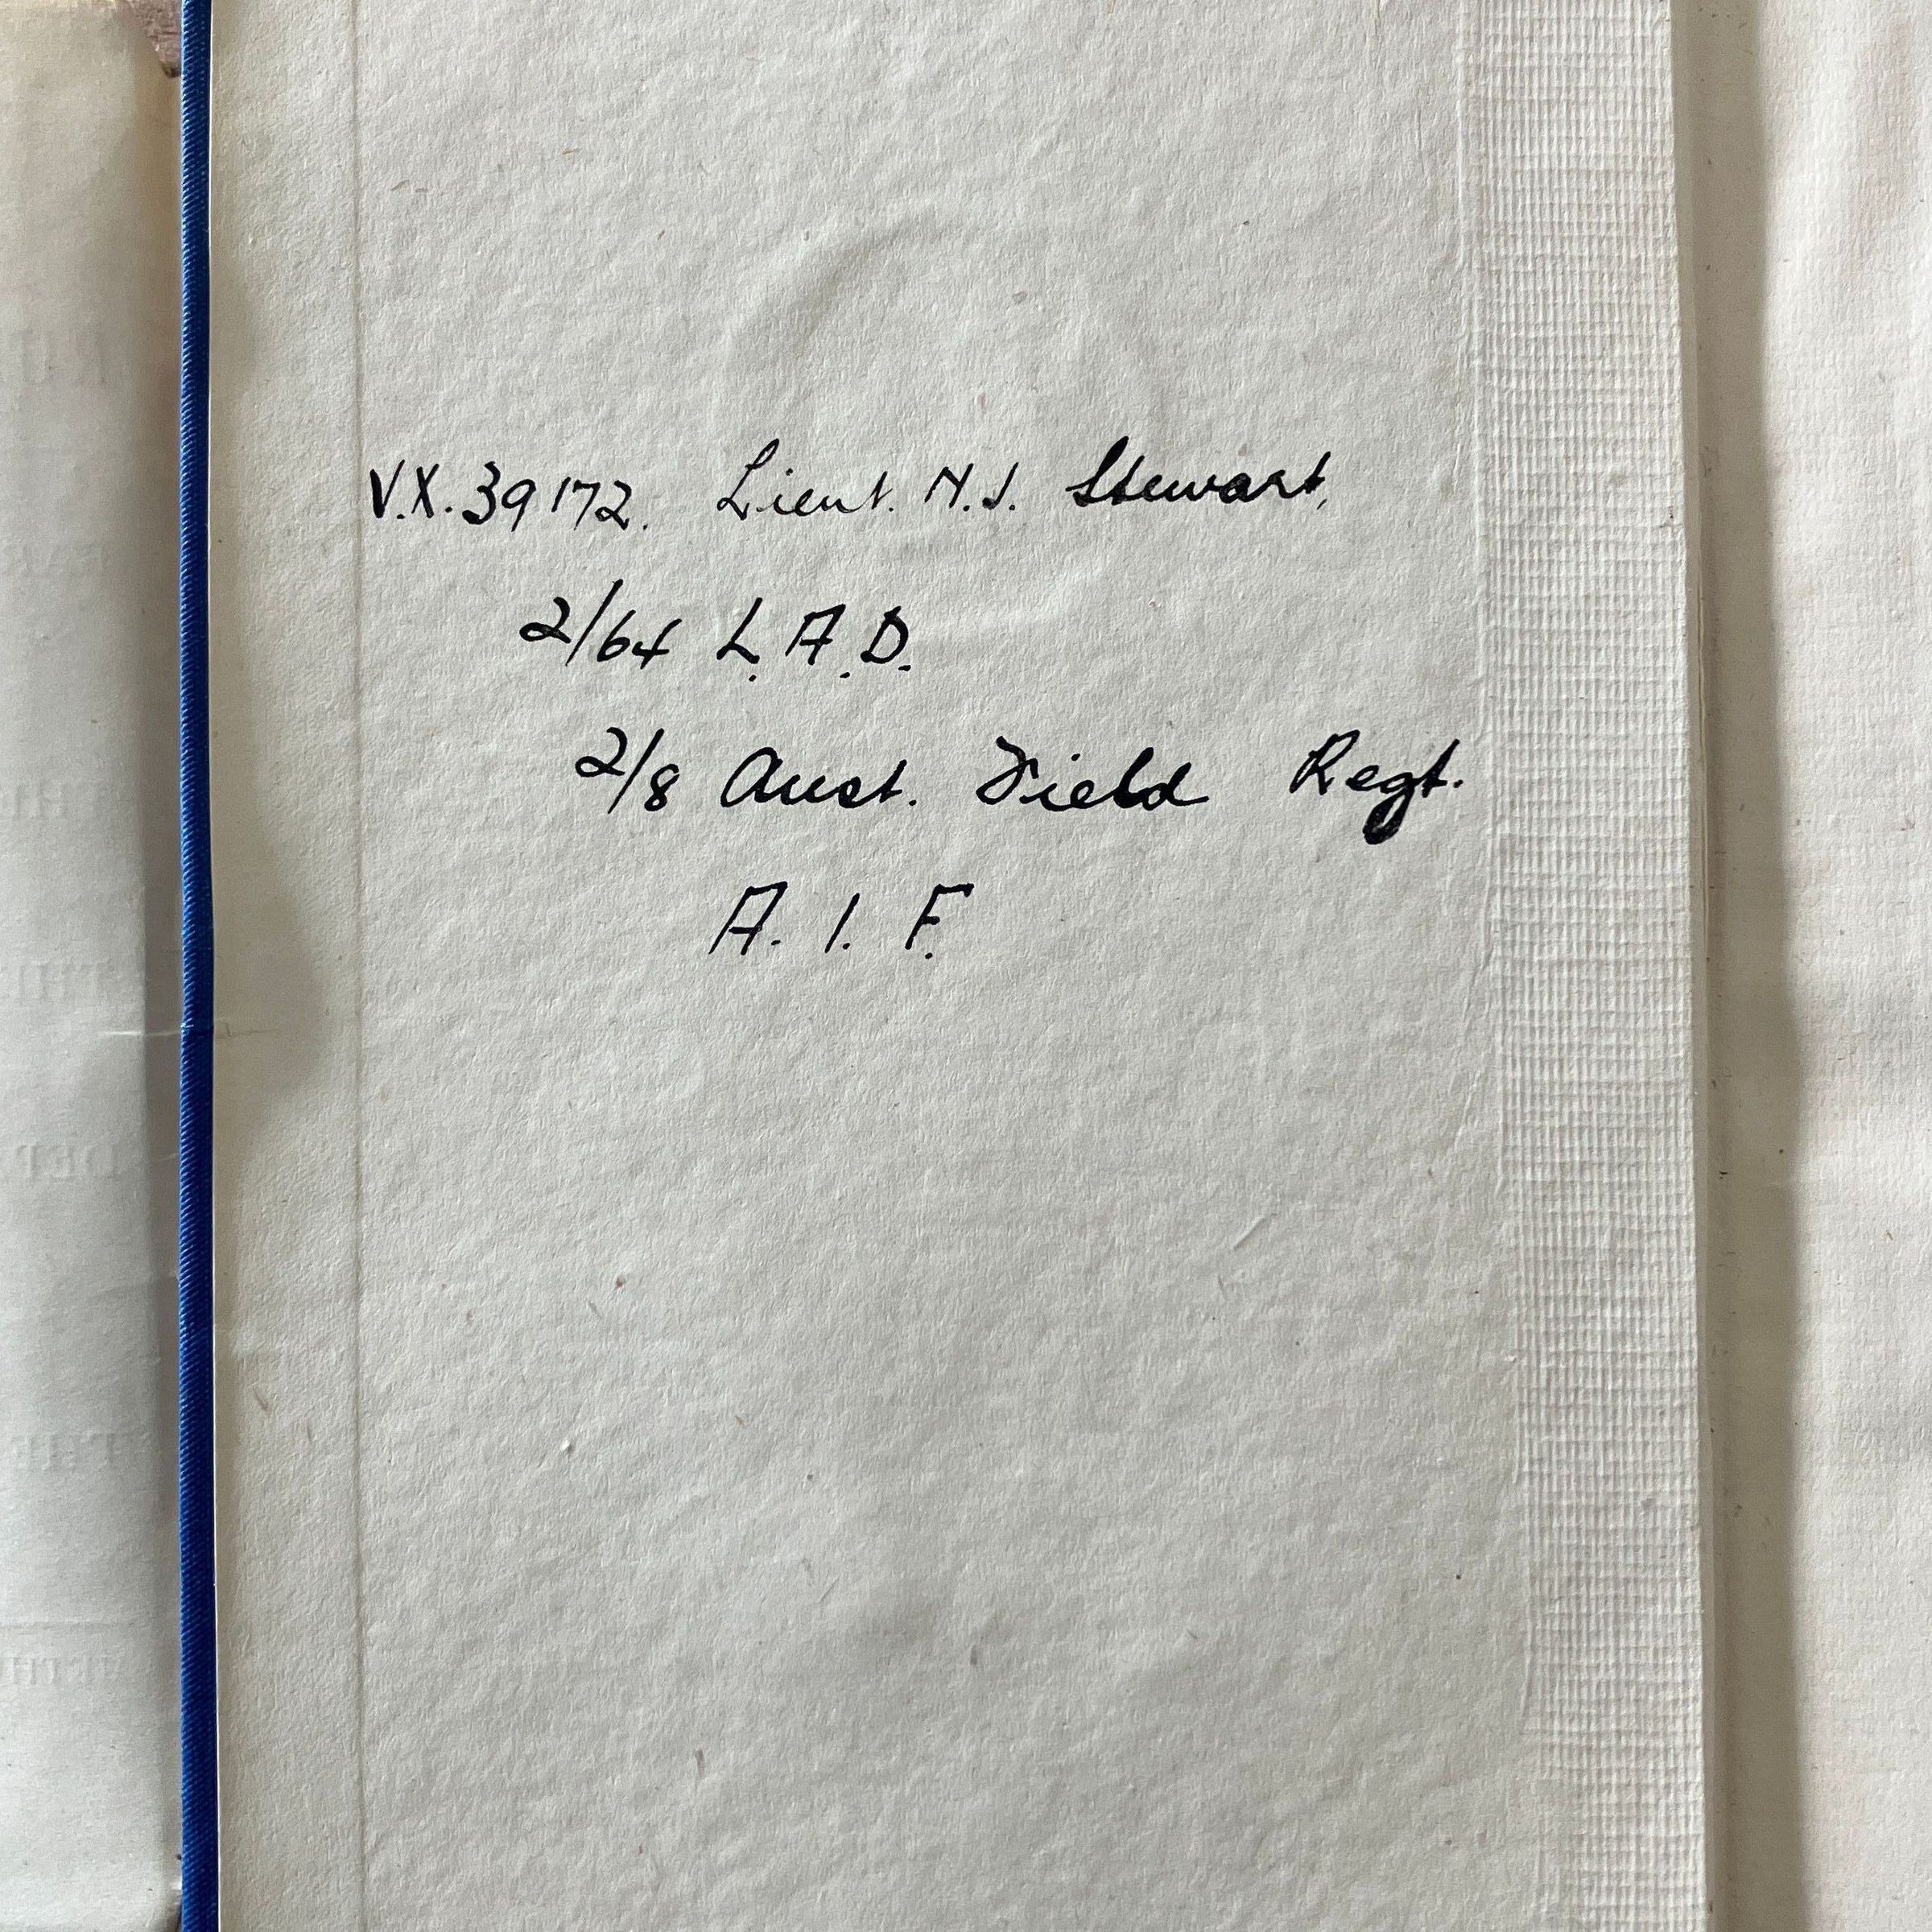 V.X. 39172. Lieut. N.J. Stewart,
2/64 L.A.D.
2/8 Aust. Field Regt.
A. I. F.